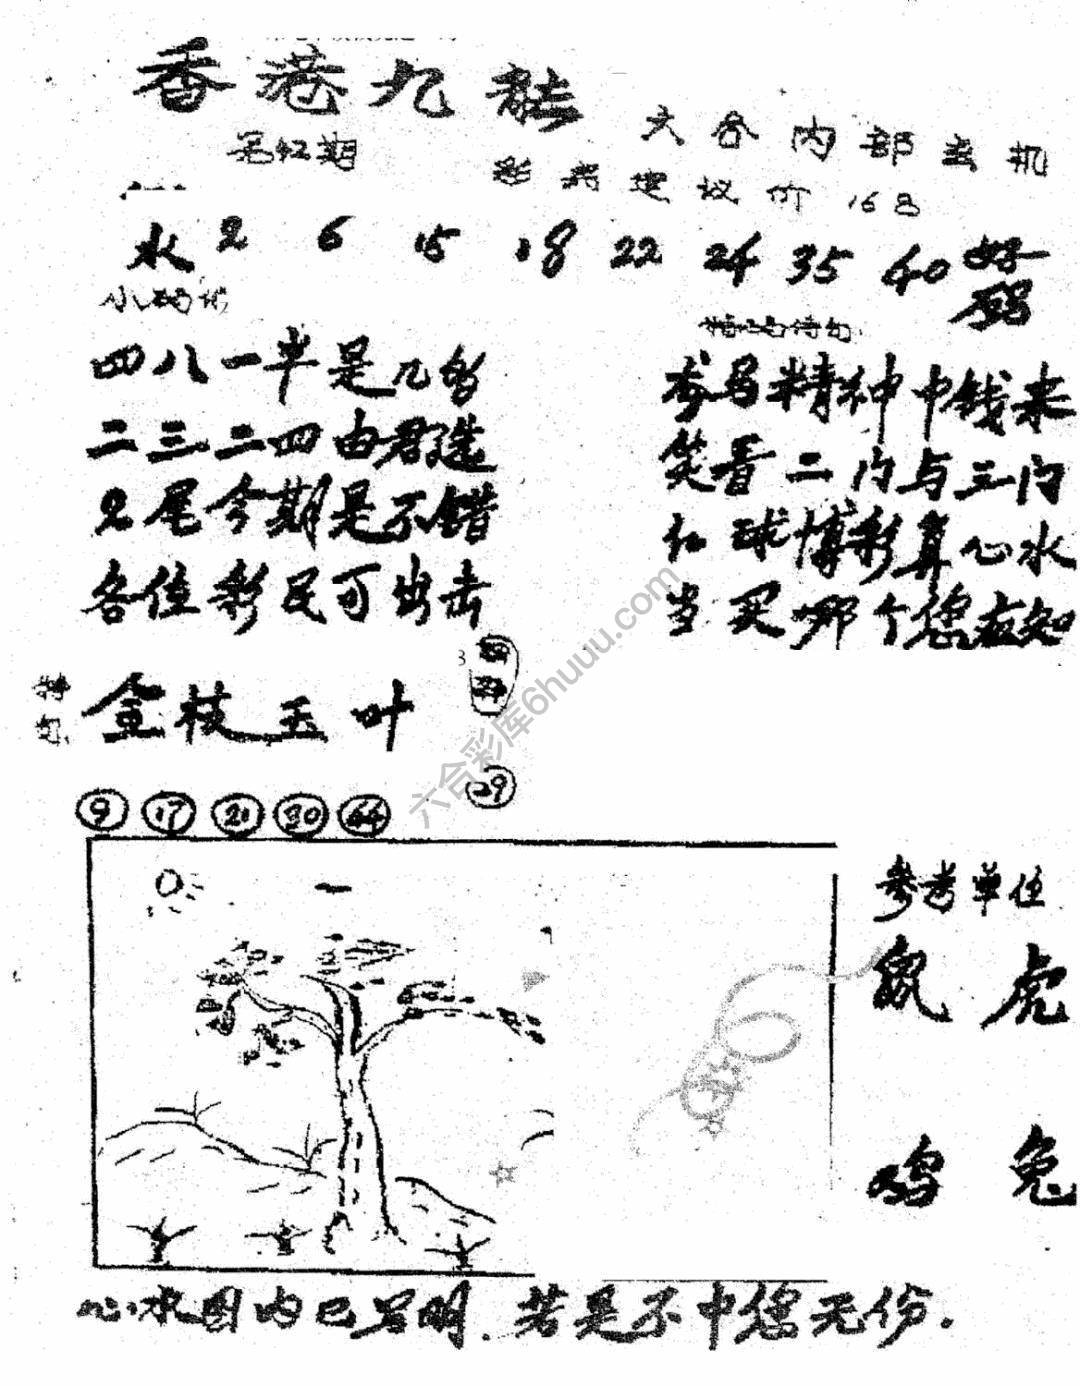 香港九龙
六合内部玄机
建议价 168
水 2 6 15 18 22 24 35 40 好码
四八一半是几多
二三二四由君选
2尾今期是不错
各位彩民可出击
特码诗句
龙马精神中钱来
笑看二门与三门
红球博彩算心水
当买哪个您应知
特句
金枝玉叶
29
9 17 21 30 44
参考单位
鼠 虎
鸡 兔
心水图内已写明.若是不中您无份.
六合彩库6huuu.com